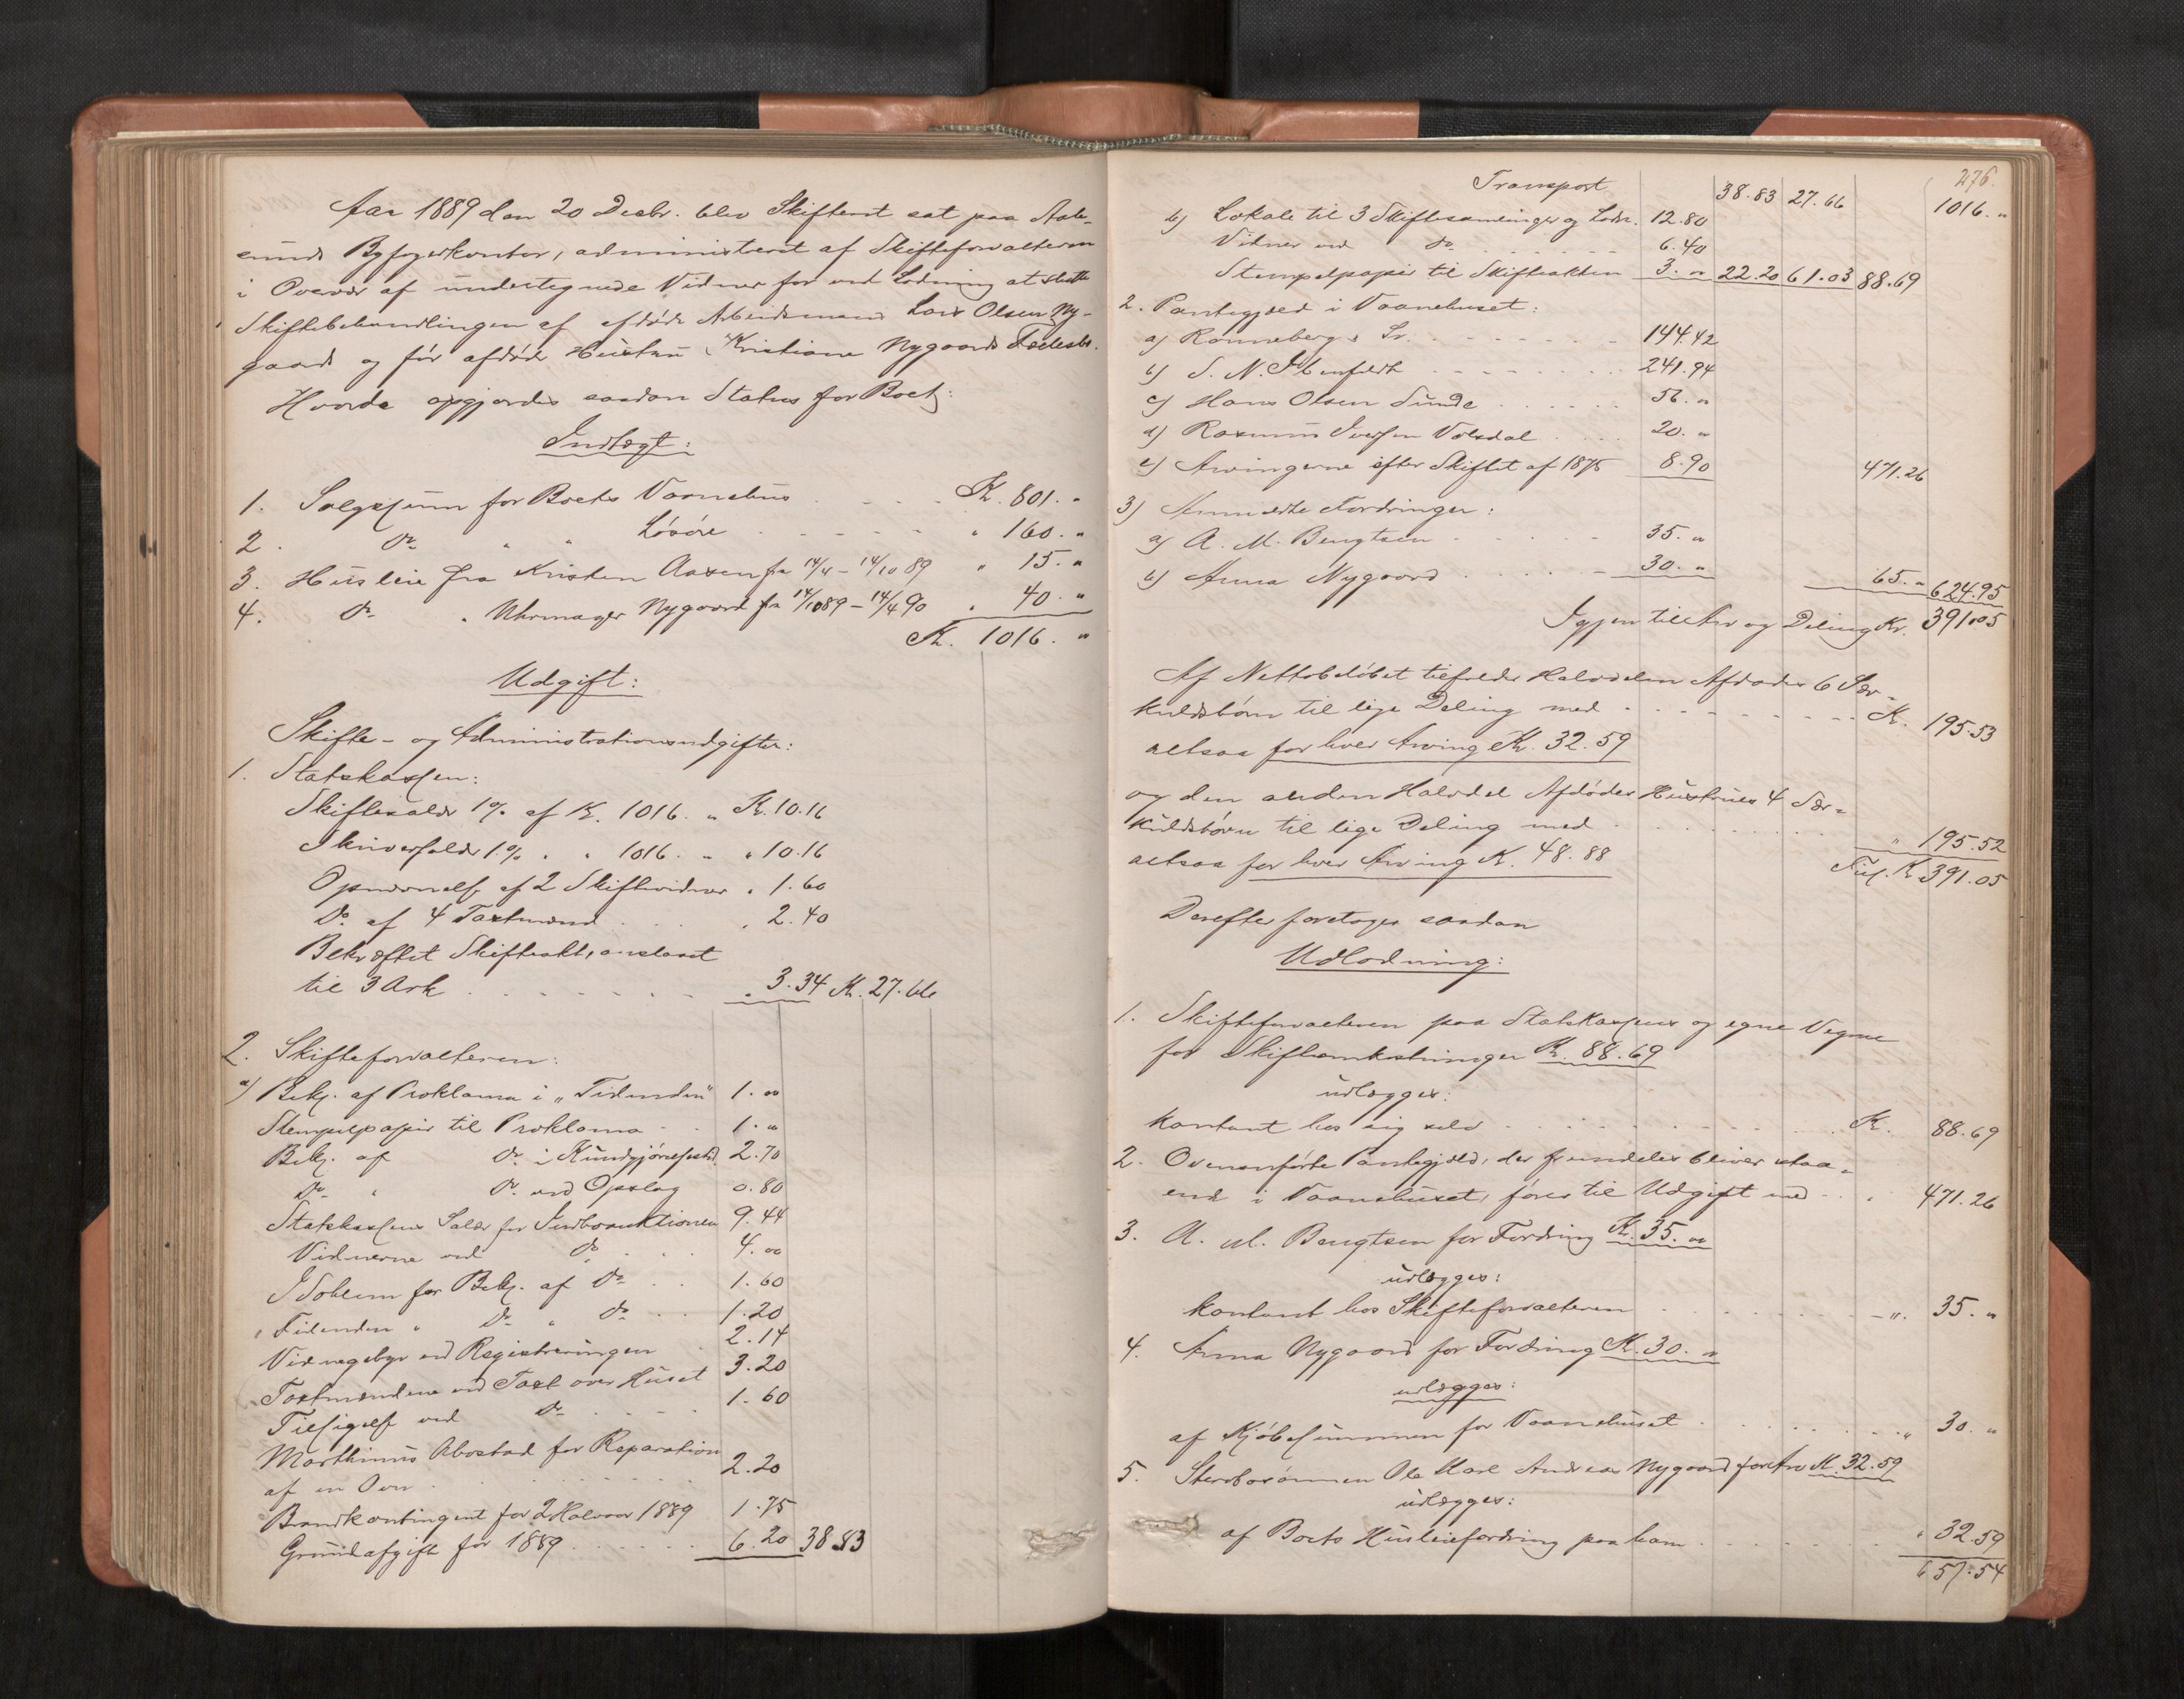 Aar 1889 den 20 Decbr. blev Skifteret sat paa Aale-
sunds Byfogedkontor, administreret af Skifteforvalteren
i Overvær af undertegnede Vidner for ved Lodning at slutte
Skiftebehandlingen af afdøde Arbeidsmand Lars Olsen Ny-
gaards og før afdøde Hustru Kristiane Nygaards Fællesbo.
Hvorda opgjordes saadan Status for Boet:
Indtægt:
1. Salgssum for Boets Vaanehus . . . . Kr. 801. "
2. Do " " Løsøre . . . . " 160. "
3. Husleie fra Kristen Aasen fra 14/4 - 14/10 89 " 15. "
4. Do " Uhrmager Nygaard fra 14/10 89 - 14/4 90 " 40. "
Kr. 1016. "
Udgift:
Skifte- og Administrationsudgifter:
1. Statskassen:
Skiftesalær 1% af Kr. 1016. " Kr. 10.16
Skriversalær 1% " " 1016. " " 10.16
Opnævnelse af 2 Skiftevidner " 1.60
Do af 4 Taxtmænd . . . " 2.40
Bekræftet Skifteakt, anslaaet
til 3 Ark . . . . . . " 3.34 Kr. 27.66
2. Skifteforvalteren:
a) Bekj. af Proklama i "Tidenden" 1. "
Stempelpapir til Proklama . . 1. "
Bekj. af Do i Kundgjørelsestid. 2.70
Do " Do ved Opslag 0.80
Statskassens Salær for Indboauktionen 9.44
Vidnerne ved Do . . . 4. "
J Solem for Bekj. af Do . . 1.60
"Tidenden" " Do " Do . . 1.20
Vidnegebyr ved Registreringen . 2.14
Taxtmændene ved Taxt over Huset 3.20
Tilsigelse ved Do . . . . 1.60
Marthinus Abostad for Reparation
af en Ovn . . . . . . 2.20
Brandkontingent for 2 Halvaar 1889 1.75
Grundafgift for 1889 . . . . . 6.20 38.83
276.
Transport 38.83 27.66 1016. "
b) Lokale til 3 Skiftesamlinger og Lodn. 12.80
Vidner ved Do . . . . . 6.40
Stempelpapir til Skifteakten 3. " 22.20 61.03 88.69
2. Pantegjæld i Vaanehuset:
a) Rønneberg s. Sr. . . . . . . 144.42
b) S. N. . . . . . . . 241.94
c) Hans Olsen Sunde . . . . . 56. "
d) Rasmus Iversen Volsdal . . . . 20. "
e) Arvingerne efter Skiftet af 1875 8.90 471.26
3) Anmeldte Fordringer:
a) A. M. Bengtsen . . . . . 35. "
b) Anna Nygaard . . . . . 30. " 65. " 624.95
Igjen til Arv og Deling Kr. 391.05
Af Nettobeløbet tilfalder Halvdelen Afdødes 6 Sær-
kuldsbørn til lige Deling med . . . . . . Kr. 195.53
altsaa for hver Arving Kr. 32.59
og den anden Halvdel Afdødes Hustrues 4 Sær-
kuldsbørn til lige Deling med . . . . . . " 195.52
altsaa for hver Arving Kr. 48.88 Tils. Kr 391.05
Derefter foretoges saadan
Udlodning:
1. Skifteforvalteren paa Statskassens og egne Vegne
for Skifteomkostninger Kr. 88.69
udlægges:
kontant hos sig selv . . . . . . . Kr. 88.69
2. Ovenanførte Pantegjæld, der fremdeles bliver staa-
ende i Vaanehuset, føres til Udgift med . . " 471.26
3. A. M. Bengtsen for Fordring Kr. 35. "
udlægges:
kontant hos Skifteforvalteren . . . . . . " 35. "
4. Anna Nygaard for Fordring Kr. 30. "
udlægges:
af Kjøbesummen for Vaanehuset . . . . . " 30. "
5. Stervbosønnen Ole Karl Andreas Nygaard for Arv Kr. 32.59
udlægges:
af Boets Husleiefordring paa ham . . . . . " 32.59
657.54